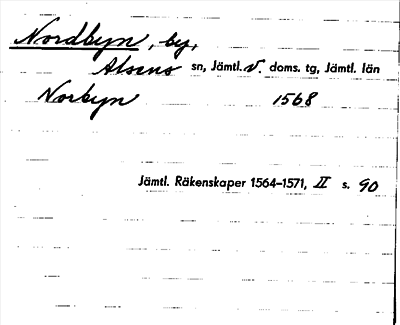 Nordbyn, by,
Alsens sn, Jämtl. v. doms. tg, Jämtl. län
Norbyn 1568
Jämtl. Räkenskaper 1564–1571, II s. 90